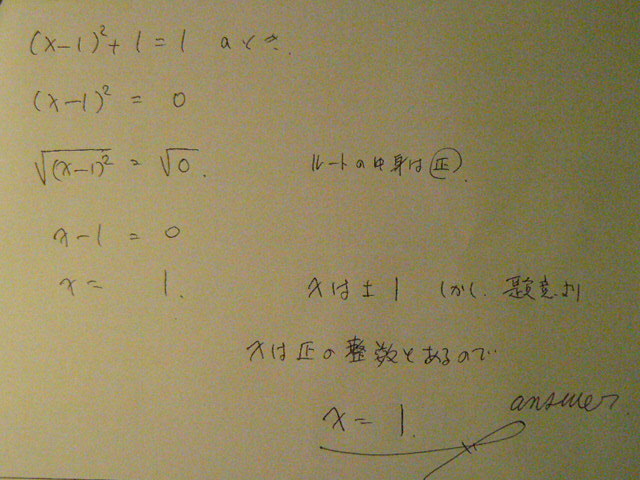 (x-1)²+1=1 のとき.
(x-1)² = 0
√(x-1)² = √0. ルートの中身は正.
x-1 = 0
x = 1. xは±1 しかし、題意より
xは正の整数とあるので
x = 1.
answer